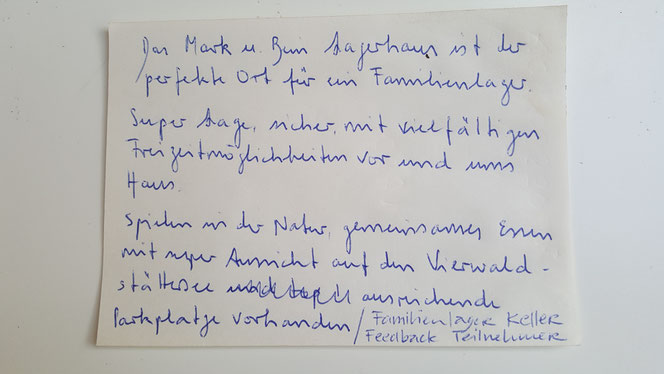 Das Mark u. Bein Lagerhaus ist der
perfekte Ort für ein Familienlager.
Super Lage, sicher, mit vielfältigen
Freizeitmöglichkeiten vor und ums
Haus.
Spielen in der Natur, gemeinsames Essen
mit super Aussicht auf den Vierwald-
stättersee ausreichende
Parkplätze vorhanden / Familienlager Keller
Feedback Teilnehmer